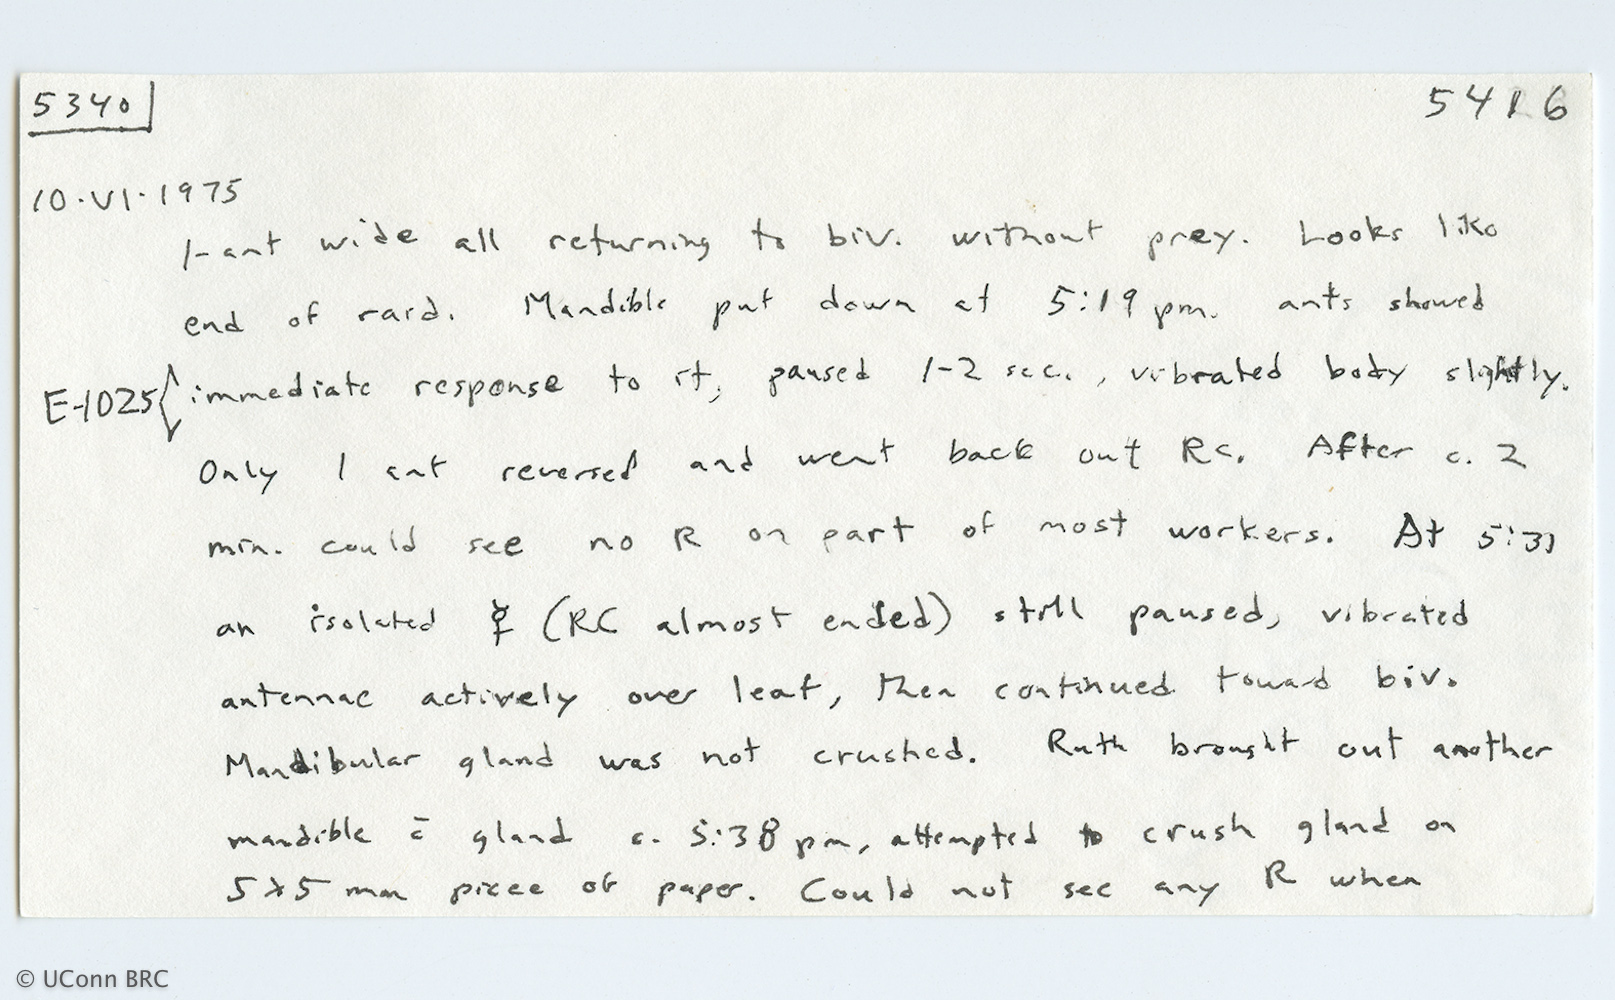 5340 5416
10·VI·1975
1-ant wide all returning to biv. without prey. Looks like
end of raid. Mandible put down at 5:19 pm. ants showed
E-1025 { immediate response to it, paused 1-2 sec., vibrated body slightly.
Only 1 ant reversed and went back out RC. After c. 2
min. could see no R on part of most workers. At 5:31
an isolated ☿ (RC almost ended) still paused, vibrated
antennae actively over leaf, then continued toward biv.
Mandibular gland was not crushed. Ruth brought out another
mandible c̄ gland c. 5:38 pm, attempted to crush gland on
5x5 mm piece of paper. Could not see any R when
© UConn BRC